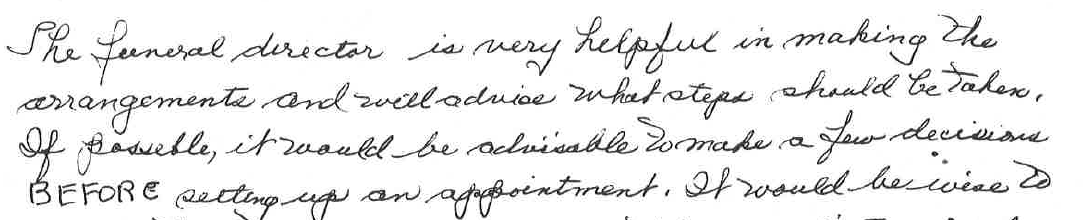 The funeral director is very helpful in making the
arrangements and will advise what steps should be taken.
If possible, it would be advisable to make a few decisions
BEFORE setting up an appointment. It would be wise to